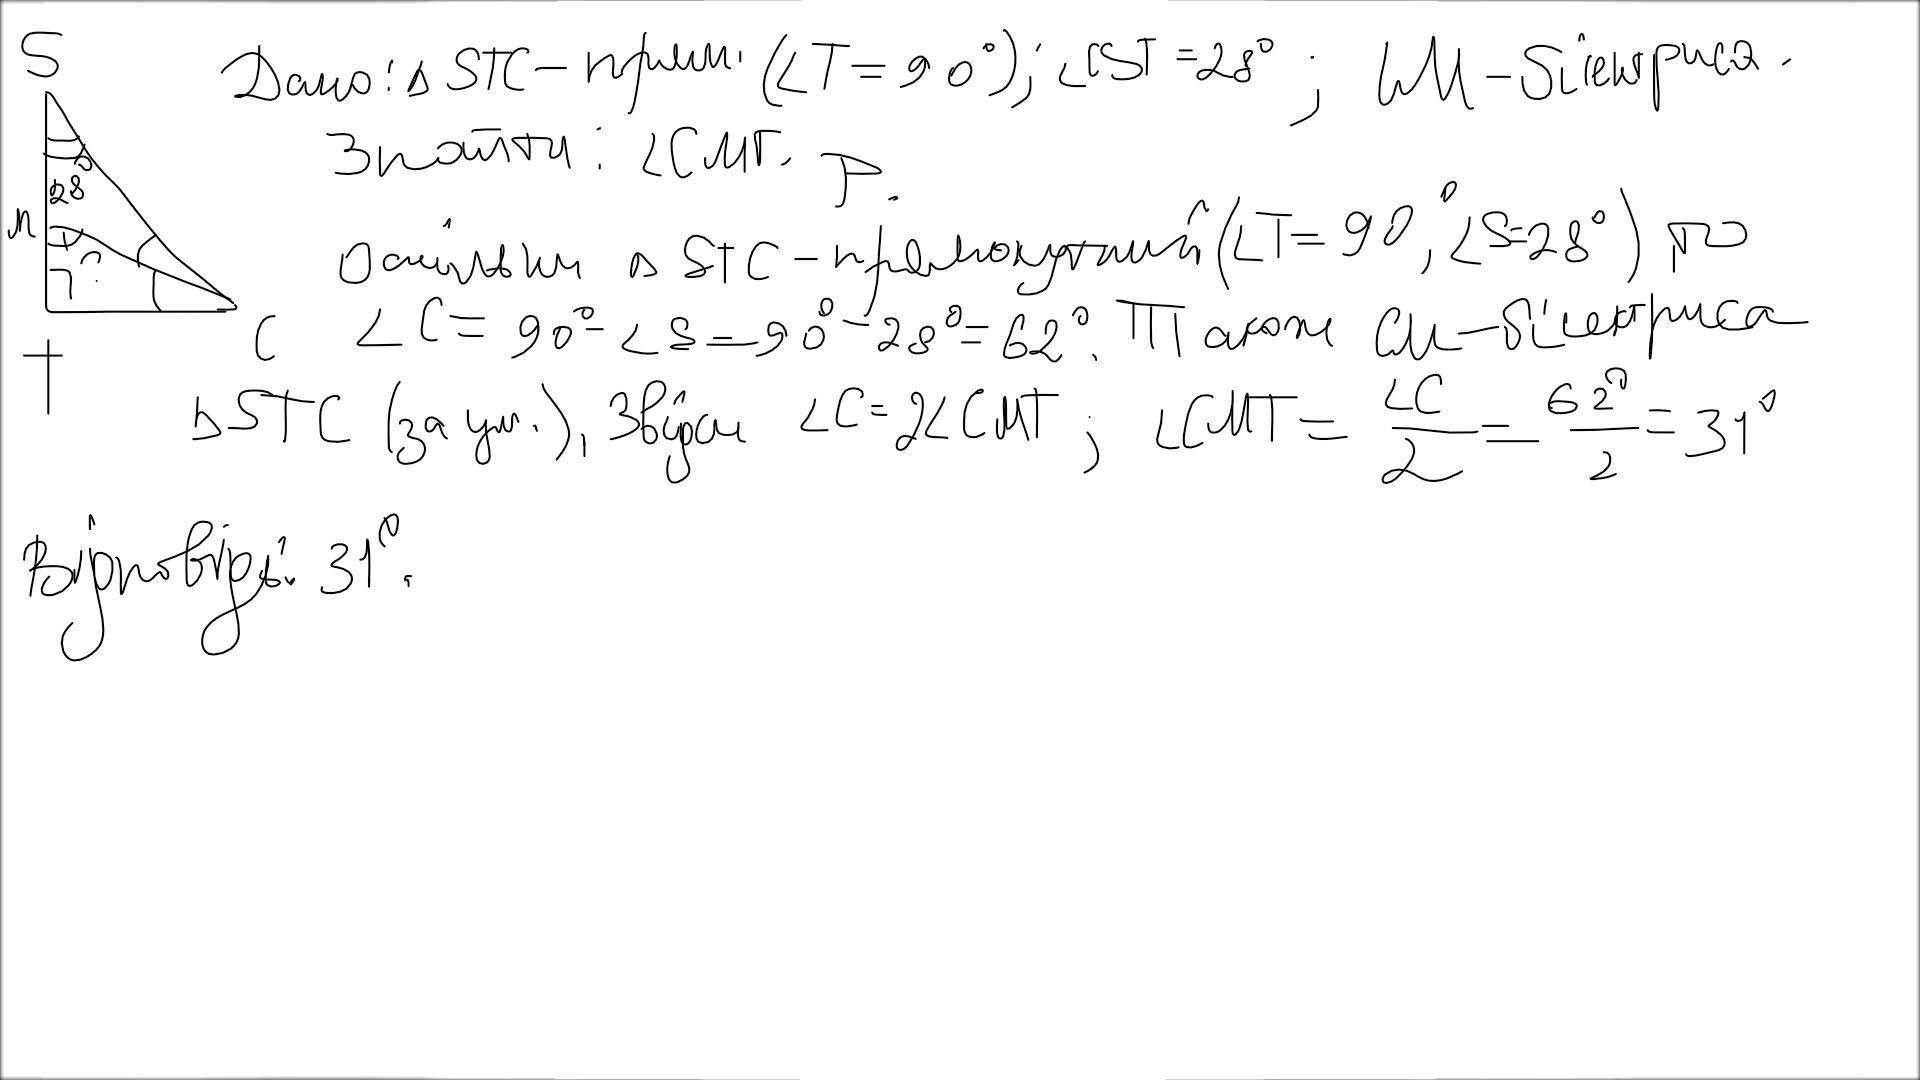 S
Дано: △ STC - прям. (∠T = 90°); ∠CST = 28°; CM - бісектриса.
Знайти: ∠CMT.
28°
M
?
C
T
Р.
Оскільки △ STC - прямокутний (∠T = 90°, ∠S = 28°) то
∠C = 90° - ∠S = 90° - 28° = 62°. Також CM - бісектриса
△STC (за ум.), Звідси ∠C = 2∠CMT; ∠CMT = ∠C/2 = 62°/2 = 31°
Відповідь: 31°.